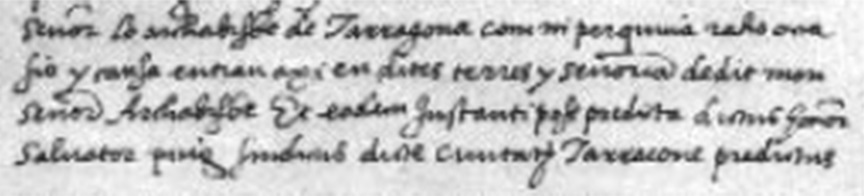 señor lo archabisbe de Tarragona com ni perquina raho oca
sio y causa entran axi en dites terres y señoria dedit mon
señor Archabisbe Et eadem Instanti post predicta dictus honor
Salvator puig sindicus dicte Civitatis Tarracone predictus